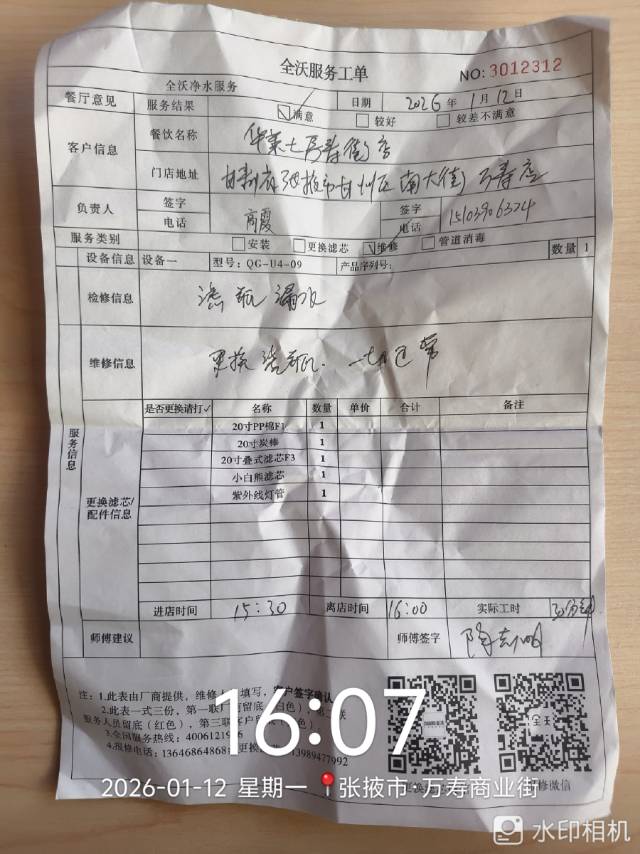 全沃服务工单
NO: 3012312
全沃净水服务
餐厅意见 服务结果 日期 2026年1月12日
满意 较好 较差不满意
客户信息 餐饮名称 华莱士万寿街店
门店地址 甘肃省张掖市甘州区南大街万寿店
负责人 签字 电话 商霞 签字 电话 15103906324
服务类别 安装 更换滤芯 维修 管道消毒 数量 1
设备信息 设备一 型号：QG-U4-09 产品序列号：
检修信息 滤瓶漏水
维修信息 更换滤瓶. 一切正常
服务信息
是否更换请打✓ 名称 数量 单价 合计 备注
20寸PP棉F1 1
20寸炭棒 1
20寸叠式滤芯F3 1
小白熊滤芯 1
紫外线灯管 1
更换滤芯/配件信息
进店时间 15:30 离店时间 16:00 实际工时 30分钟
师傅建议 师傅签字
注：1.此表由厂商提供，维修人 填写，客户签字确认
2.此表一式三份，第一联 留底（白色），第二联
服务人员留底（红色），第三联客户留
3.全国服务热线：4006121
4.报修电话：13646864868 更换 13989477992
维修微信
16:07
2026-01-12 星期一 张掖市·万寿商业街
水印相机